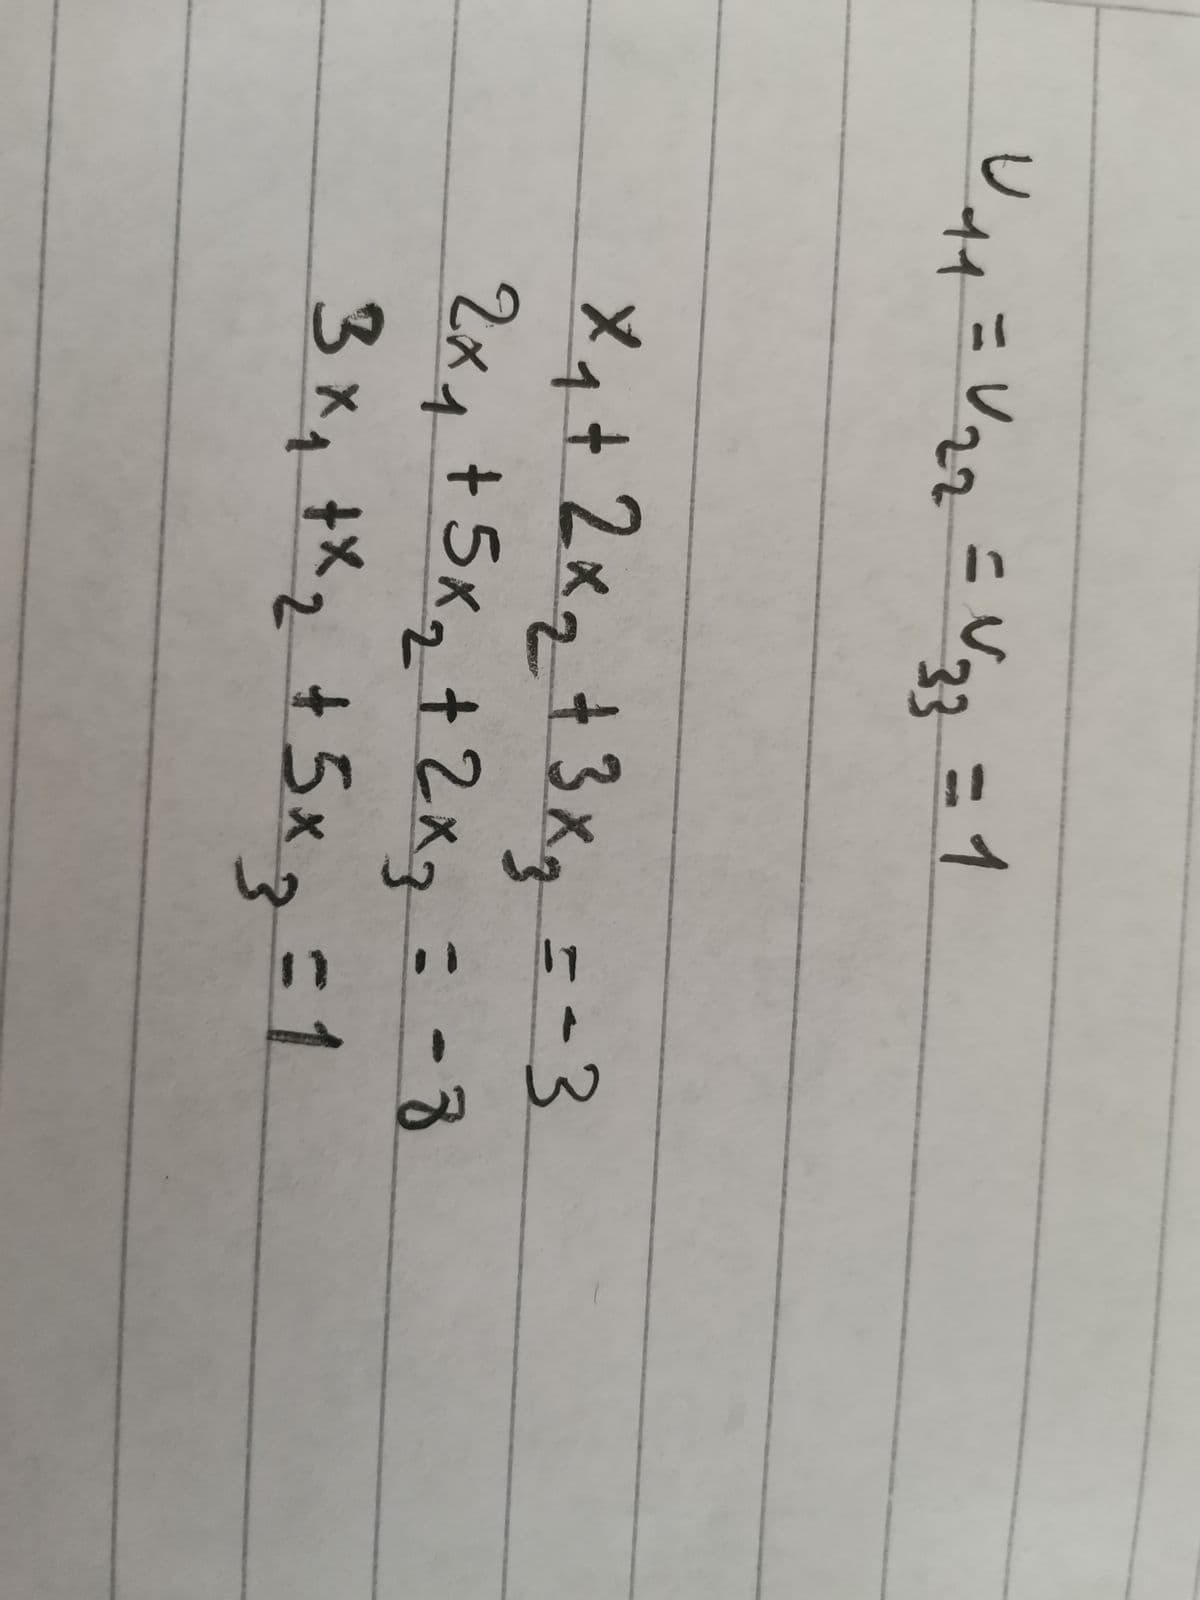 U₁₁ = U₂₂ = U₃₃ = 1
x₁ + 2x₂ + 3x₃ = -3
2x₁ + 5x₂ + 2x₃ = -8
3x₁ + x₂ + 5x₃ = 1